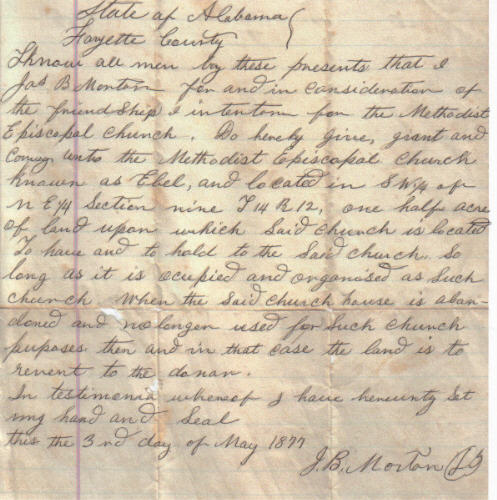 State of Alabama
Fayette County
Know all men by these presents that I
Jas B Morton for and in consideration of
the friendship I intertain for the Methodist
Episcopal Church. Do hereby give, grant and
Convey unto the Methodist Episcopal Church
known as Ebel, and located in S W¼ of
N E ¼ Section nine T 14 R 12, one half acre
of land upon which Said church is located
To have and to hold to the Said church. So
long as it is ocupied and organised as Such
church. When the Said church house is aban-
doned and no longer used for Such church
purposes then and in that case the land is to
revert to the donar.
In testimonia whereof I have hereunty Set
my hand and Seal
this the 3rd day of May 1877
J. B. Morton